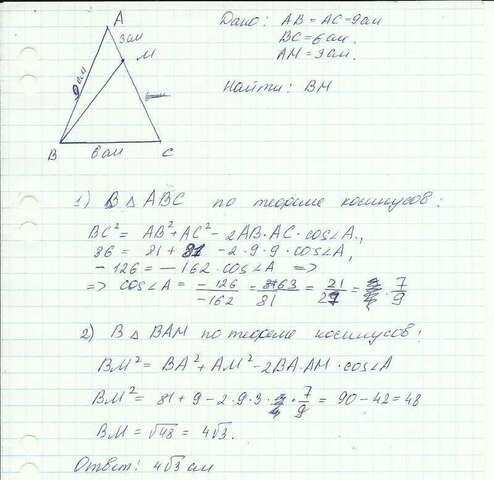 A
3см
M
9см
B
6см
C
Дано: AB = AC = 9см
BC = 6см.
AM = 3см.
Найти: BM
1) В △ ABC по теореме косинусов:
BC² = AB² + AC² - 2AB·AC·cos∠A,
36 = 81 + 81 - 2·9·9·cos∠A,
- 126 = - 162·cos∠A =>
=> cos∠A = -126/-162 = 63/81 = 21/27 = 7/9
2) В △ BAM по теореме косинусов:
BM² = BA² + AM² - 2BA·AM·cos∠A
BM² = 81 + 9 - 2·9·3·7/9 = 90 - 42 = 48
BM = √48 = 4√3.
Ответ: 4√3 см